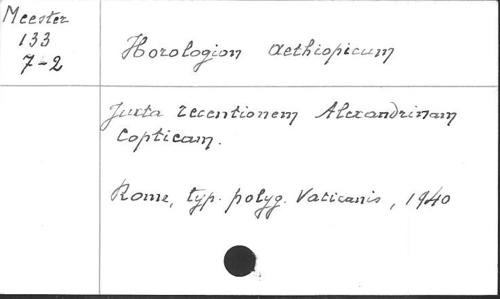 Meester
133
7-2
Horologion Aethiopicum
Juxta recentionem Alexandrinam
Copticam.
Rome, typ. polyg. Vaticanis, 1940